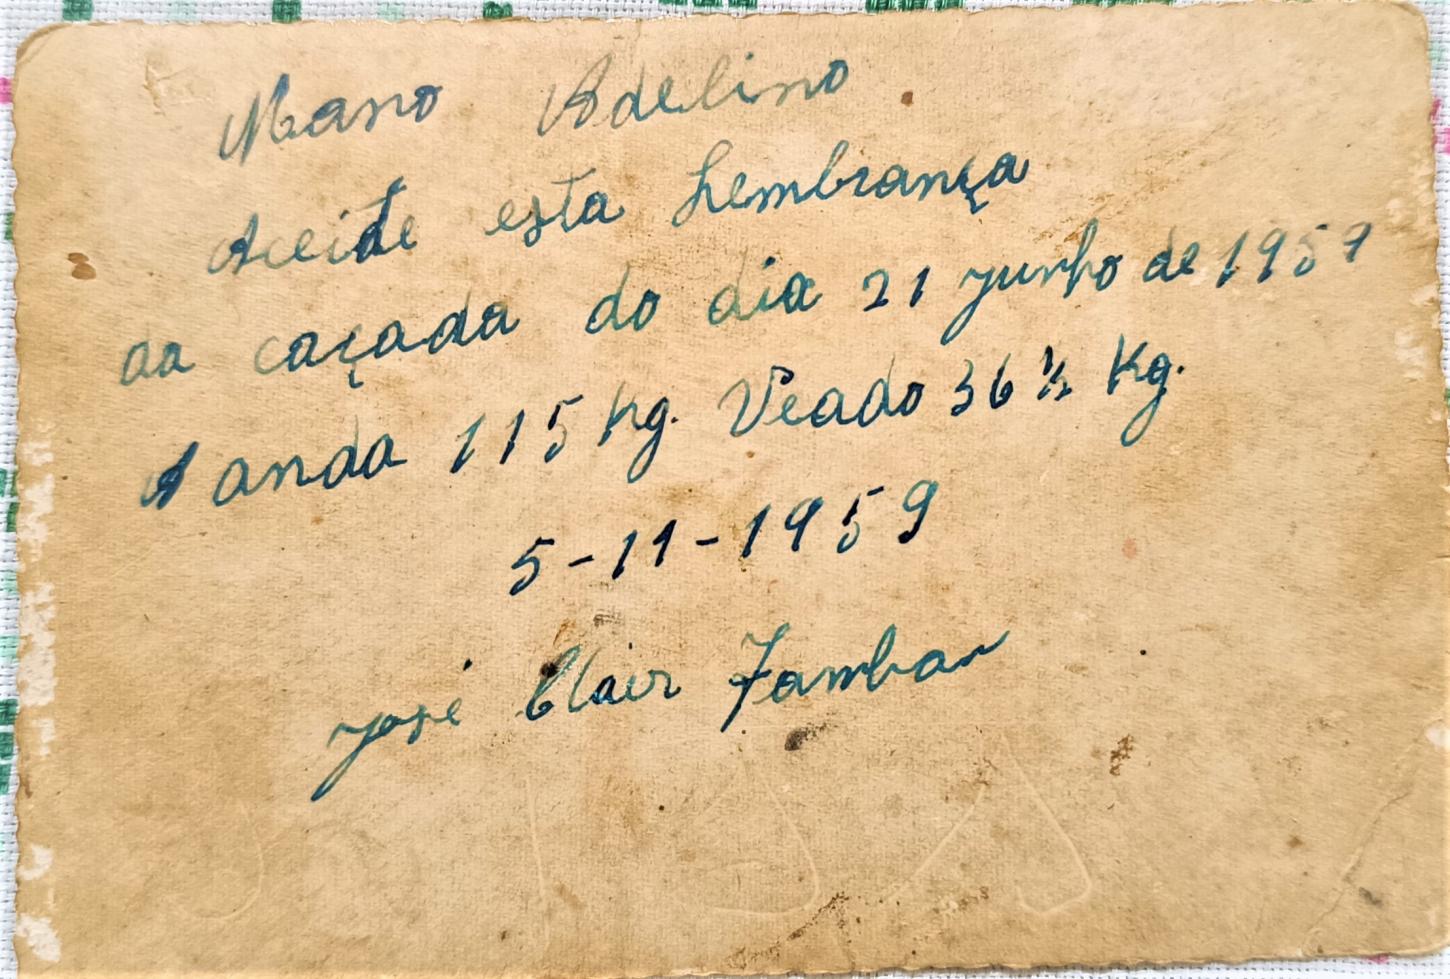 Mano Adelino
Aceite esta Lembrança
da caçada do dia 21 junho de 1959
A anda 115 kg. Veado 36 ½ Kg.
5-11-1959
José Clair Zambar